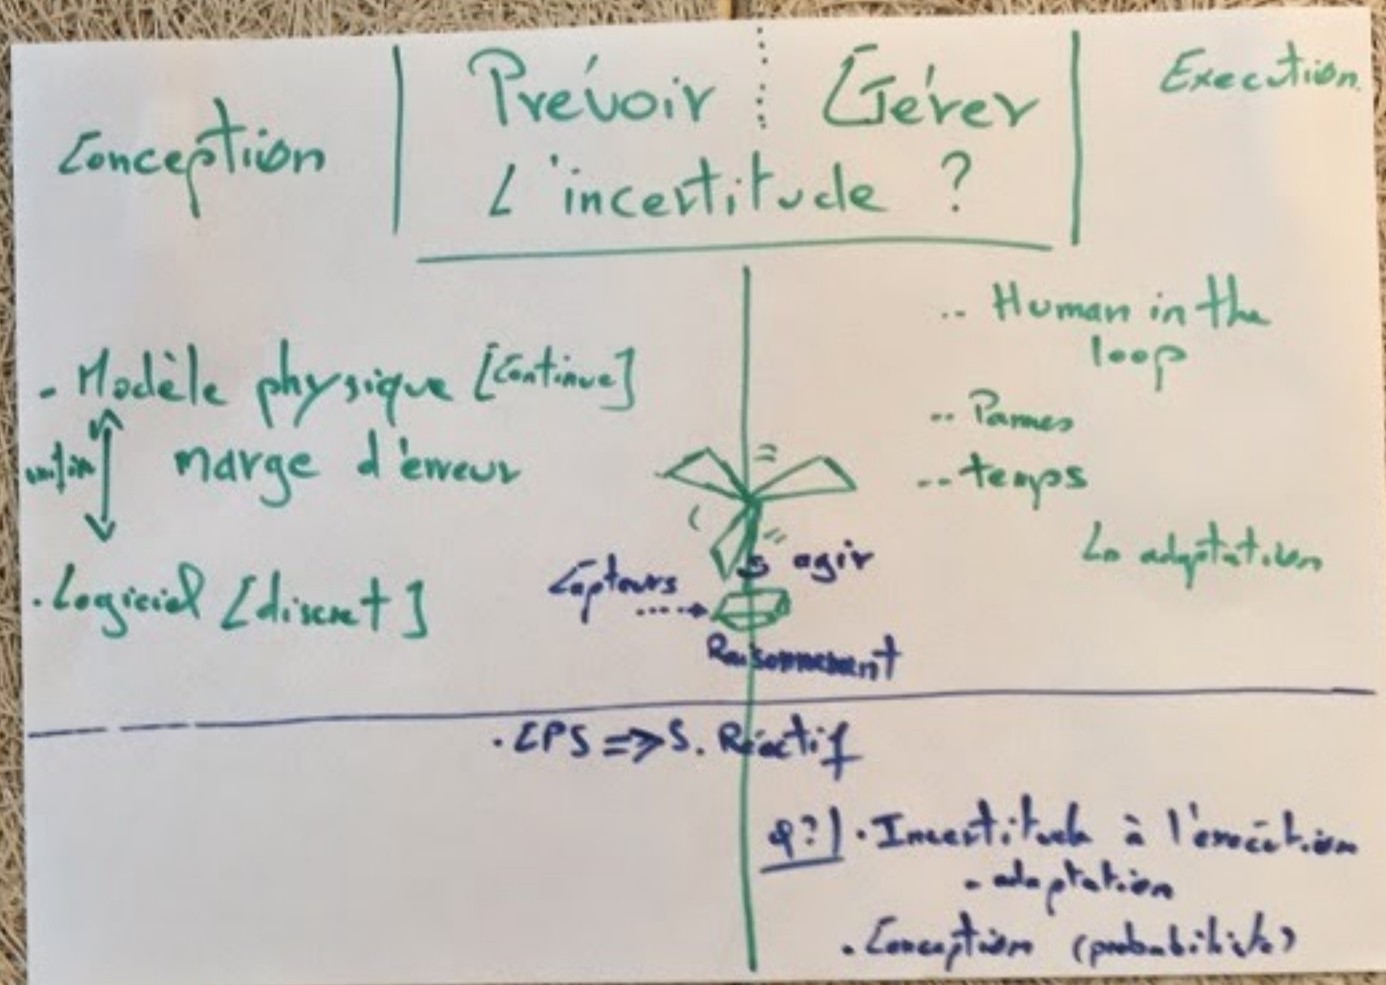 Conception
Prévoir Gérer
L'incertitude ?
Execution
- Modèle physique [Continue]
marge d'erreur
. Logiciel [discret]
.. Human in the
loop
-- Pannes
-- temps
↳ adaptation
Capteurs
agir
Raisonnement
. CPS => S. Réactif
Q?) . Incertitude à l'exécution
- adaptation
. Conception (probabilité)